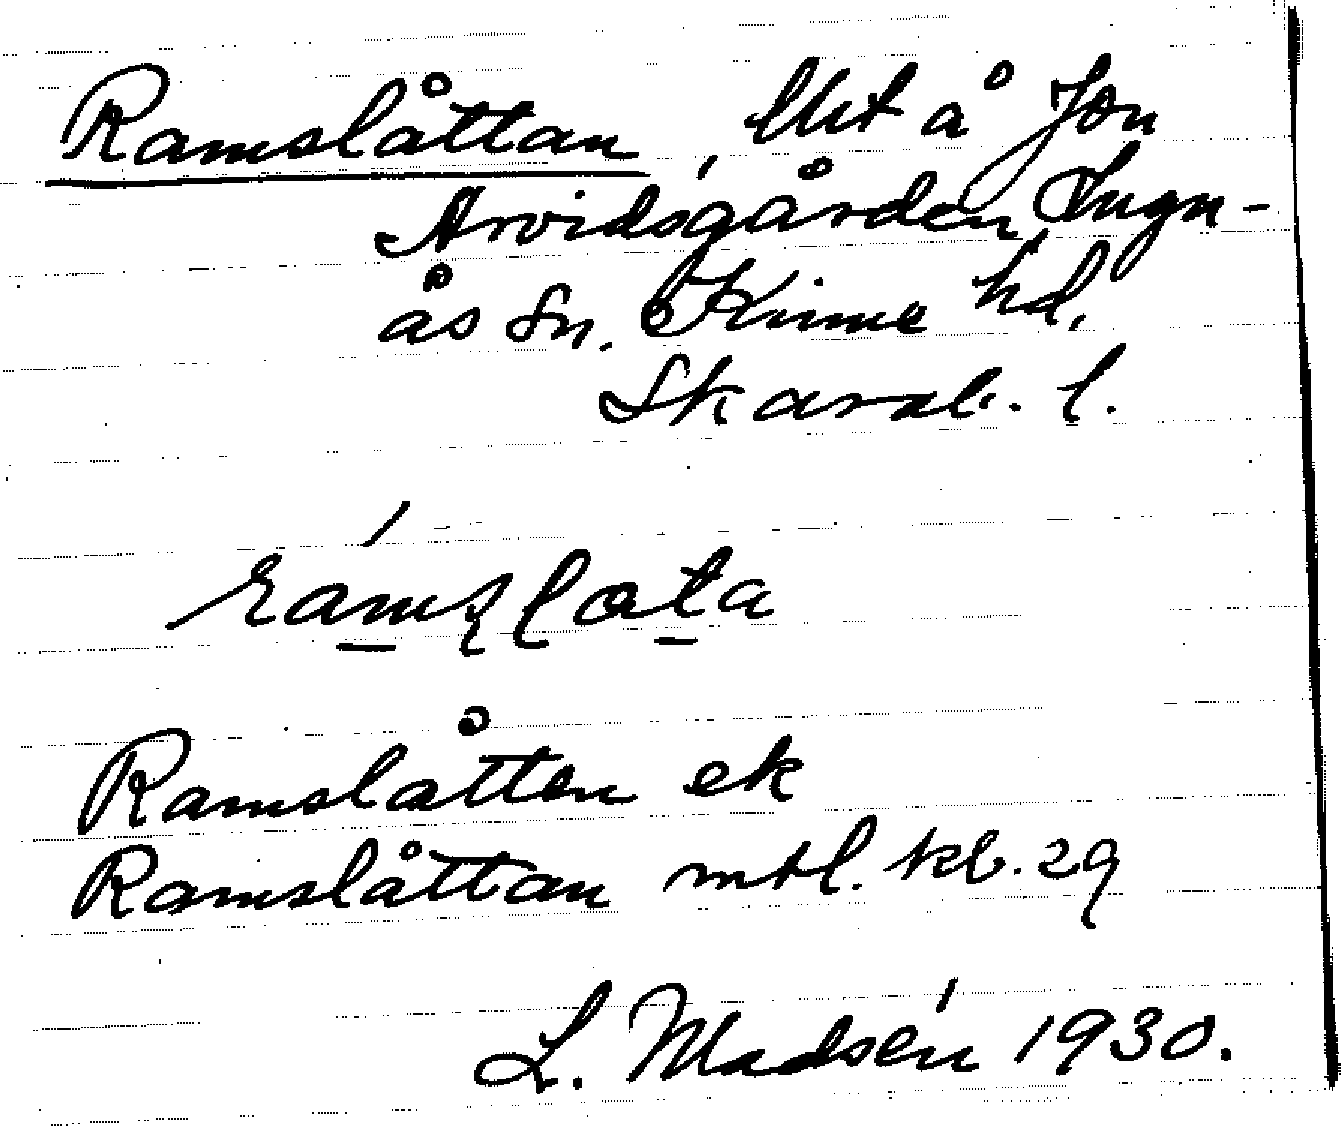 Ramslåttan, llht å Jon
Arvidsgården, Lugn-
ås sn. Kinne hd,
Skarab. l.
ramslata
Ramslåtten ek
Ramslåttan mtl. kb. 29
L. Madsén 1930.